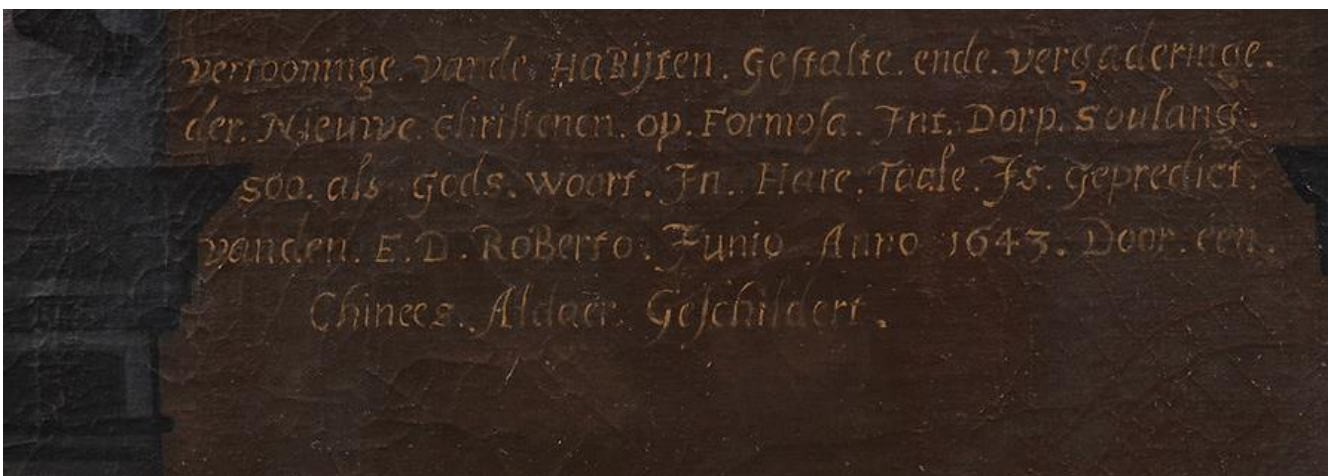 vertooninge. vande. HaBijten. Gestalte. ende. vergaderinge.
der. Nieuwe. Christenen. op. Formosa. Int. Dorp. Soulang.
soo. als. Gods. Woort. In. Hare. Taale. Is. gepredict.
vanden. E. D. RoBerto. Junio. Anno 1643. Door. een.
Chinees. Aldaer. Geschildert.